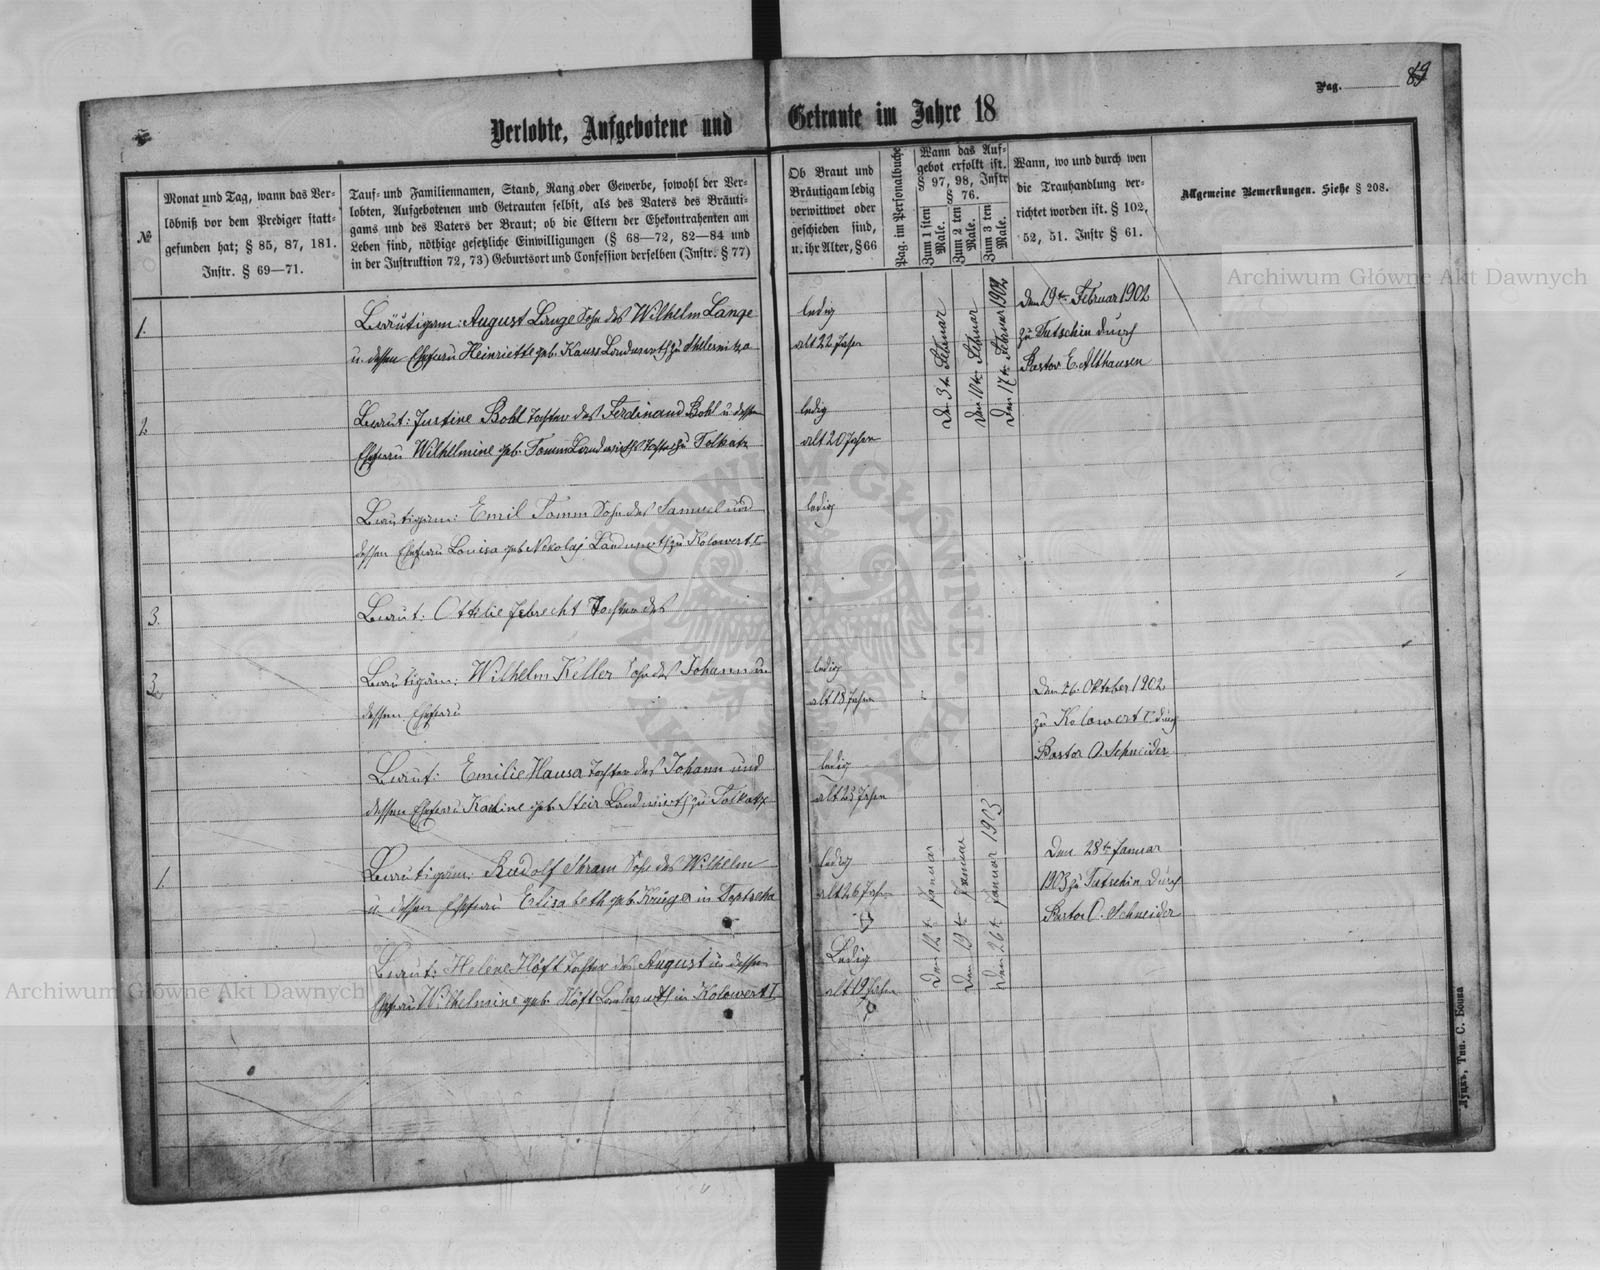 Pag. 89
Verlobte, Aufgebotene und Getraute im Jahre 18
№
Monat und Tag, wann das Ver-
löbniß vor dem Prediger statt-
gefunden hat; § 85, 87, 181.
Instr. § 69—71.
Tauf- und Familiennamen, Stand, Rang oder Gewerbe, sowohl der Ver-
lobten, Aufgebotenen und Getrauten selbst, als des Vaters des Bräuti-
gams und des Vaters der Braut; ob die Eltern der Ehekontrahenten am
Leben sind, nöthige gesetzliche Einwilligungen (§ 68—72, 82—84 und
in der Instruktion 72, 73) Geburtsort und Confession derselben (Instr. § 77)
Ob Braut und
Bräutigam ledig
verwittwet oder
geschieden sind,
u. ihr Alter, § 66
Pag. im Personalbuche
Wann das Auf-
gebot erfolgt ist.
§ 97, 98, Instr
§ 76.
Zum 1 sten Male.
Zum 2 ten Male.
Zum 3 ten Male.
Wann, wo und durch wen
die Trauhandlung ver-
richtet worden ist. § 102,
52, 51. Instr § 61.
Allgemeine Bemerkungen. Siehe § 208.
1.
Bräutigam: August Lange Sohn des Wilhelm Lange
u. dessen Ehefrau Heinriette geb. Kauss Landwirth zu
ledig
alt 22 Jahr
Den 3t. Februar
Den 10t. Februar
Den 17t. Februar 1902
Den 19t. Februar 1902
zu Tutschin durch
Pastor E. Althausen
2
Braut: Justine Bohl Tochter des Ferdinand Bohl u dessen
Ehefrau Wilhelmine geb. Tomm Landwirths Tochter zu
ledig
alt 20 Jahre
Bräutigam: Emil Tomm Sohn des Samuel und
dessen Ehefrau Louisa geb Nikolaj Landwirth zu Kolowert I
ledig
3.
Braut: Ottilie Jebrecht Tochter des
3
Bräutigam: Wilhelm Keller Sohn des Johann u
dessen Ehefrau
ledig
alt 18 Jahre
Den 26. Oktober 1902
zu Kolowert I. durch
Pastor O. Schneider
Braut: Emilie Hausa Tochter des Johann und
dessen Ehefrau Karline geb. Steir Landwirth zu
ledig
alt 23 Jahre
1.
Bräutigam: Rudolf Shram Sohn des Wilhelm
u. dessen Ehefrau Elisabeth geb. Krüger in
ledig
alt 26 Jahre
Den 12t. Januar
Den 19t. Januar
Den 26t. Januar 1903
Den 28te Januar
1903 zu Tutschin durch
Pastor O. Schneider
Braut: Helene Höft Tochter des August u dessen
Ehefrau Wilhelmine geb. Höft Landwirth in Kolowert I.
Ledig
alt 19 Jahre
Луцкъ, Тип. С. Бокка
Archiwum Główne Akt Dawnych
Archiwum Główne Akt Dawnych